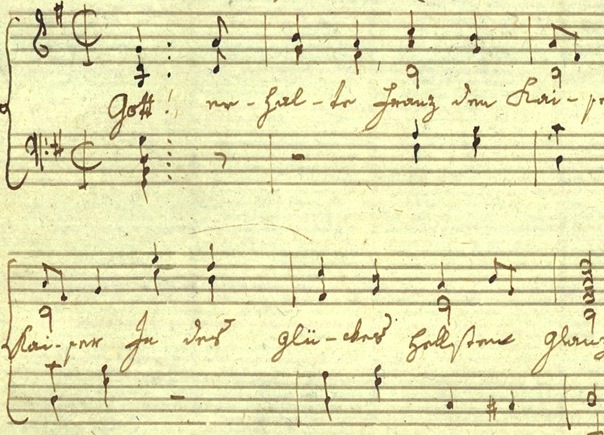 Gott! er-hal-te Franz den Kai-se
Kai-ser In des Glü-ckes hellstem Glanz